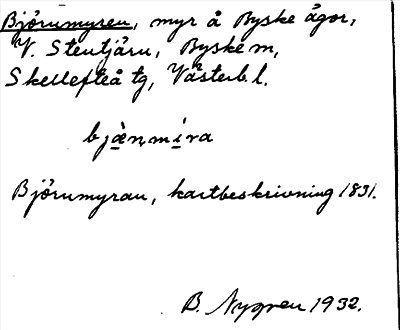 Björnmyren, myr å Byske ågor,
V. Stentjärn, Byske m,
Skellefteå tg, Västerb. l.
bjæ̀nmíra
Björnmyran, kartbeskrivning 1831.
B. Nygren 1932.